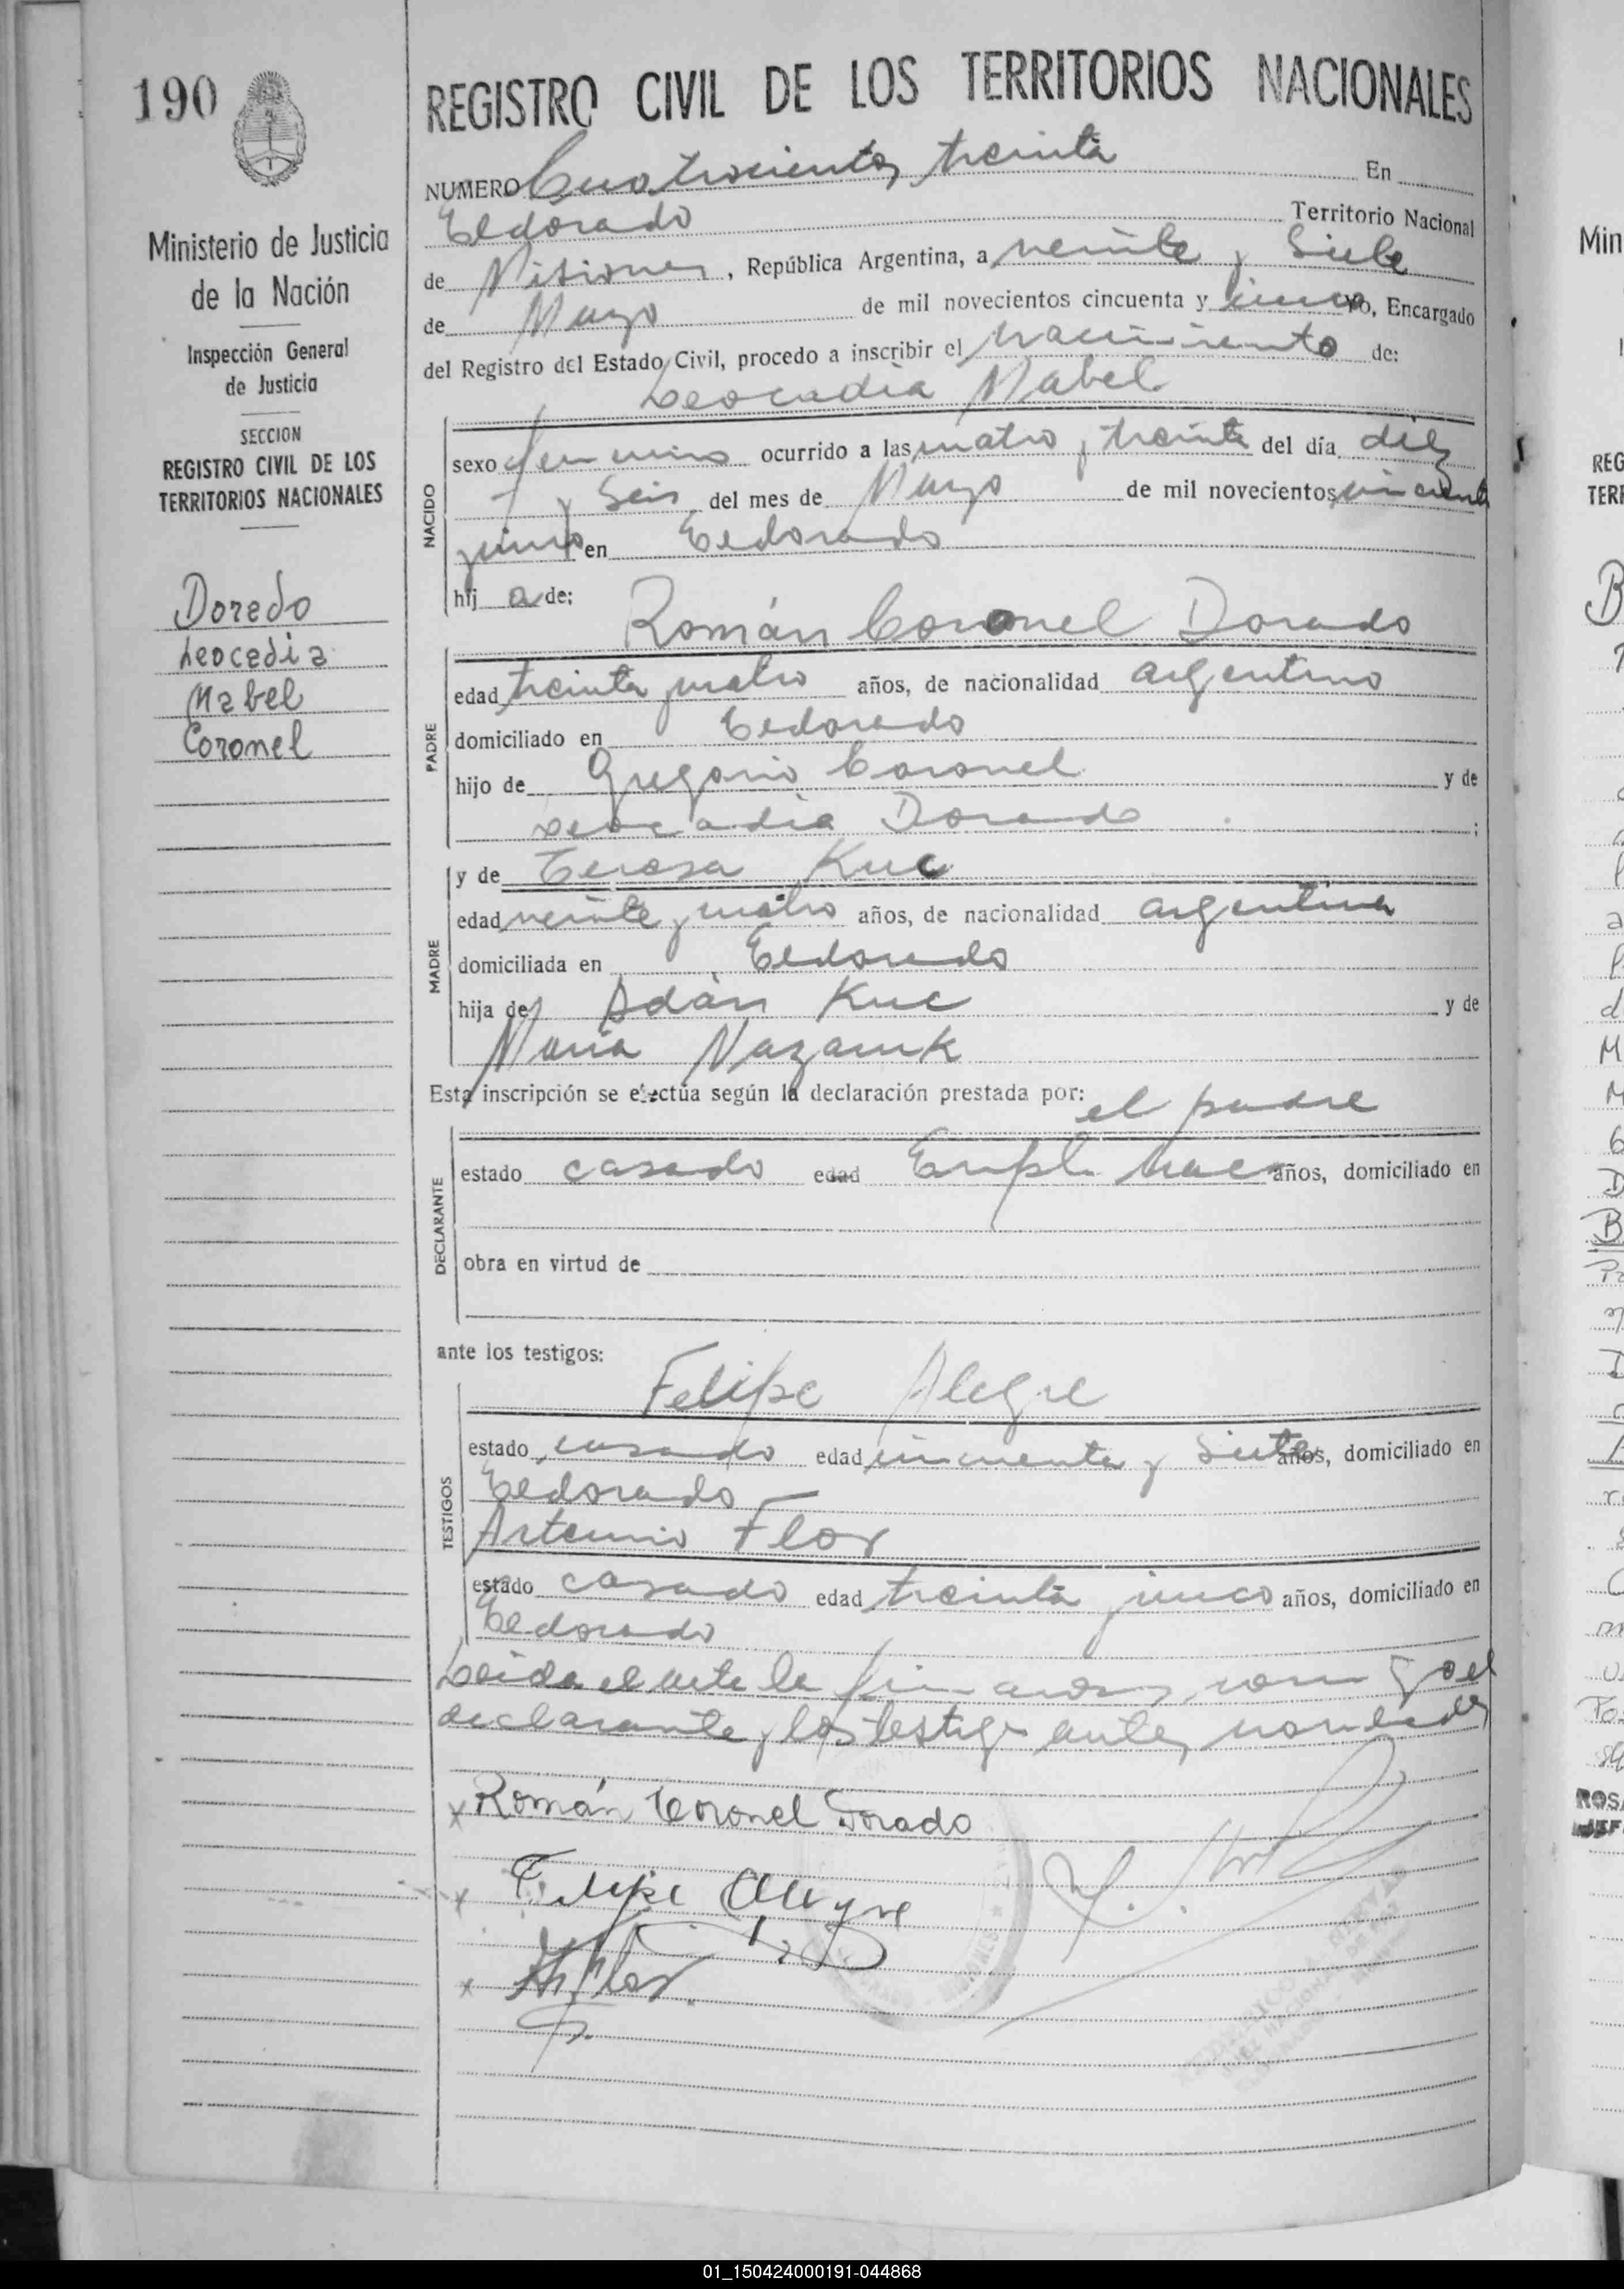 190
Ministerio de Justicia
de la Nación
Inspección General
de Justicia
SECCION
REGISTRO CIVIL DE LOS
TERRITORIOS NACIONALES
Doredo
Leocedia
Mabel
Coronel
REGISTRO CIVIL DE LOS TERRITORIOS NACIONALES
NUMERO Cuatrocientos treinta En
Eldorado Territorio Nacional
de Misiones, República Argentina, a veinte y Siete
de Mayo de mil novecientos cincuenta y cinco Yo, Encargado
del Registro del Estado Civil, procedo a inscribir el nacimiento de:
Leocadia Mabel
NACIDO
sexo femenino ocurrido a las cuatro y treinta del día diez
y Seis del mes de Mayo de mil novecientos cincuenta
y cinco en Eldorado
hij a de:
Román Coronel Dorado
PADRE
edad treinta y cuatro años, de nacionalidad argentino
domiciliado en Eldorado
hijo de Gregorio Coronel y de
Leocadia Dorado ;
y de Teresa Kuc
MADRE
edad veinte y cuatro años, de nacionalidad argentina
domiciliada en Eldorado
hija de Adán Kuc y de
María Nazaruk
Esta inscripción se efectúa según la declaración prestada por:
el padre
DECLARANTE
estado casado edad Empl. años, domiciliado en
obra en virtud de
ante los testigos:
Felipe Alegre
TESTIGOS
estado casado edad cincuenta y Siete años, domiciliado en
Eldorado
Artemio Flor
estado casado edad treinta y cinco años, domiciliado en
Eldorado
Leída el acta la firmaron el
declarante y los testigos antes nombrados
x Román Coronel Dorado
x Felipe Alegre
x A. Flor
Min
REG
TERR
ROSA
JEF
01_150424000191-044868